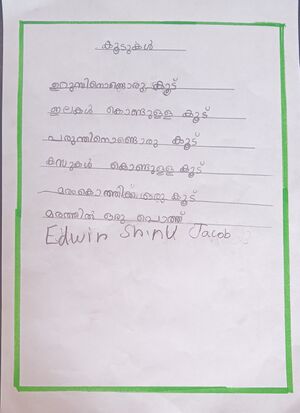 കൂടുകൾ
ഉറുമ്പിനൊണ്ടൊരു കൂട്
ഇലകൾ കൊണ്ടുള്ള കൂട്
പരുന്തിനൊണ്ടൊരു കൂട്
കമ്പുകൾ കൊണ്ടുള്ള കൂട്
മരംകൊത്തിക്ക് ഒരു കൂട്
മരത്തിൽ ഒരു പൊത്ത്
Edwin Shinu Jacob